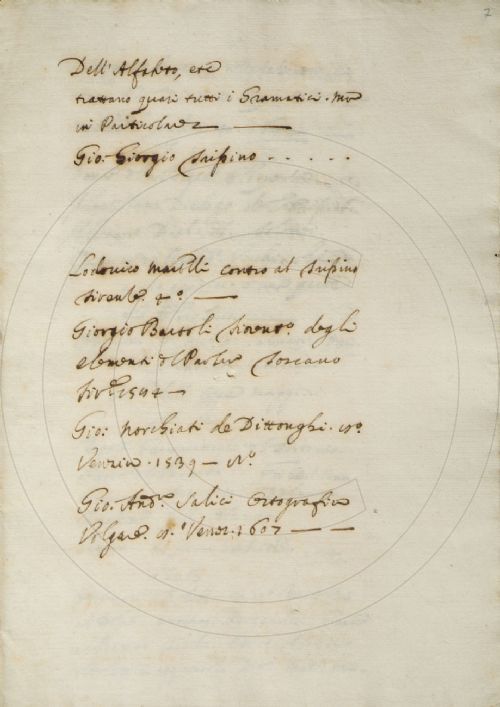 7
Dell'Alfabeto, etc
trattano quasi tutti i Gramatici. Ma
in Particolare
Gio. Giorgio Trissino . . . . .
Lodovico Martelli contro al Trissino
Firenze. 4º.
Giorgio Bartoli Fiorent.º degli
elementi del Parlar Toscano
Fir.e 1584
Gio: Norchiati de Dittonghi.
Venezia. 1539
Gio. And.a Salici Ortografia
Volgare. Venez. 1607